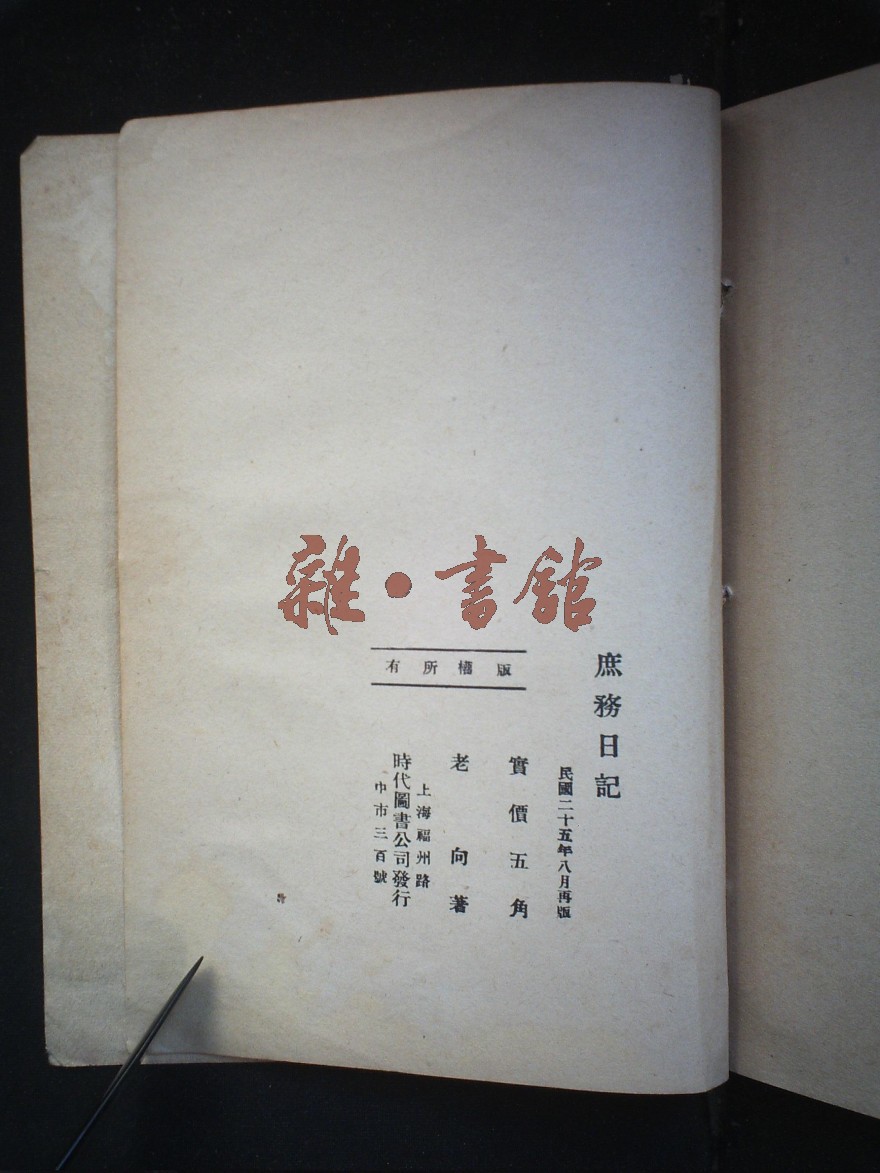 雜·書館
版權所有
庶務日記
民國二十五年八月再版
實價五角
老向著
上海福州路
時代圖書公司發行
中市三百號